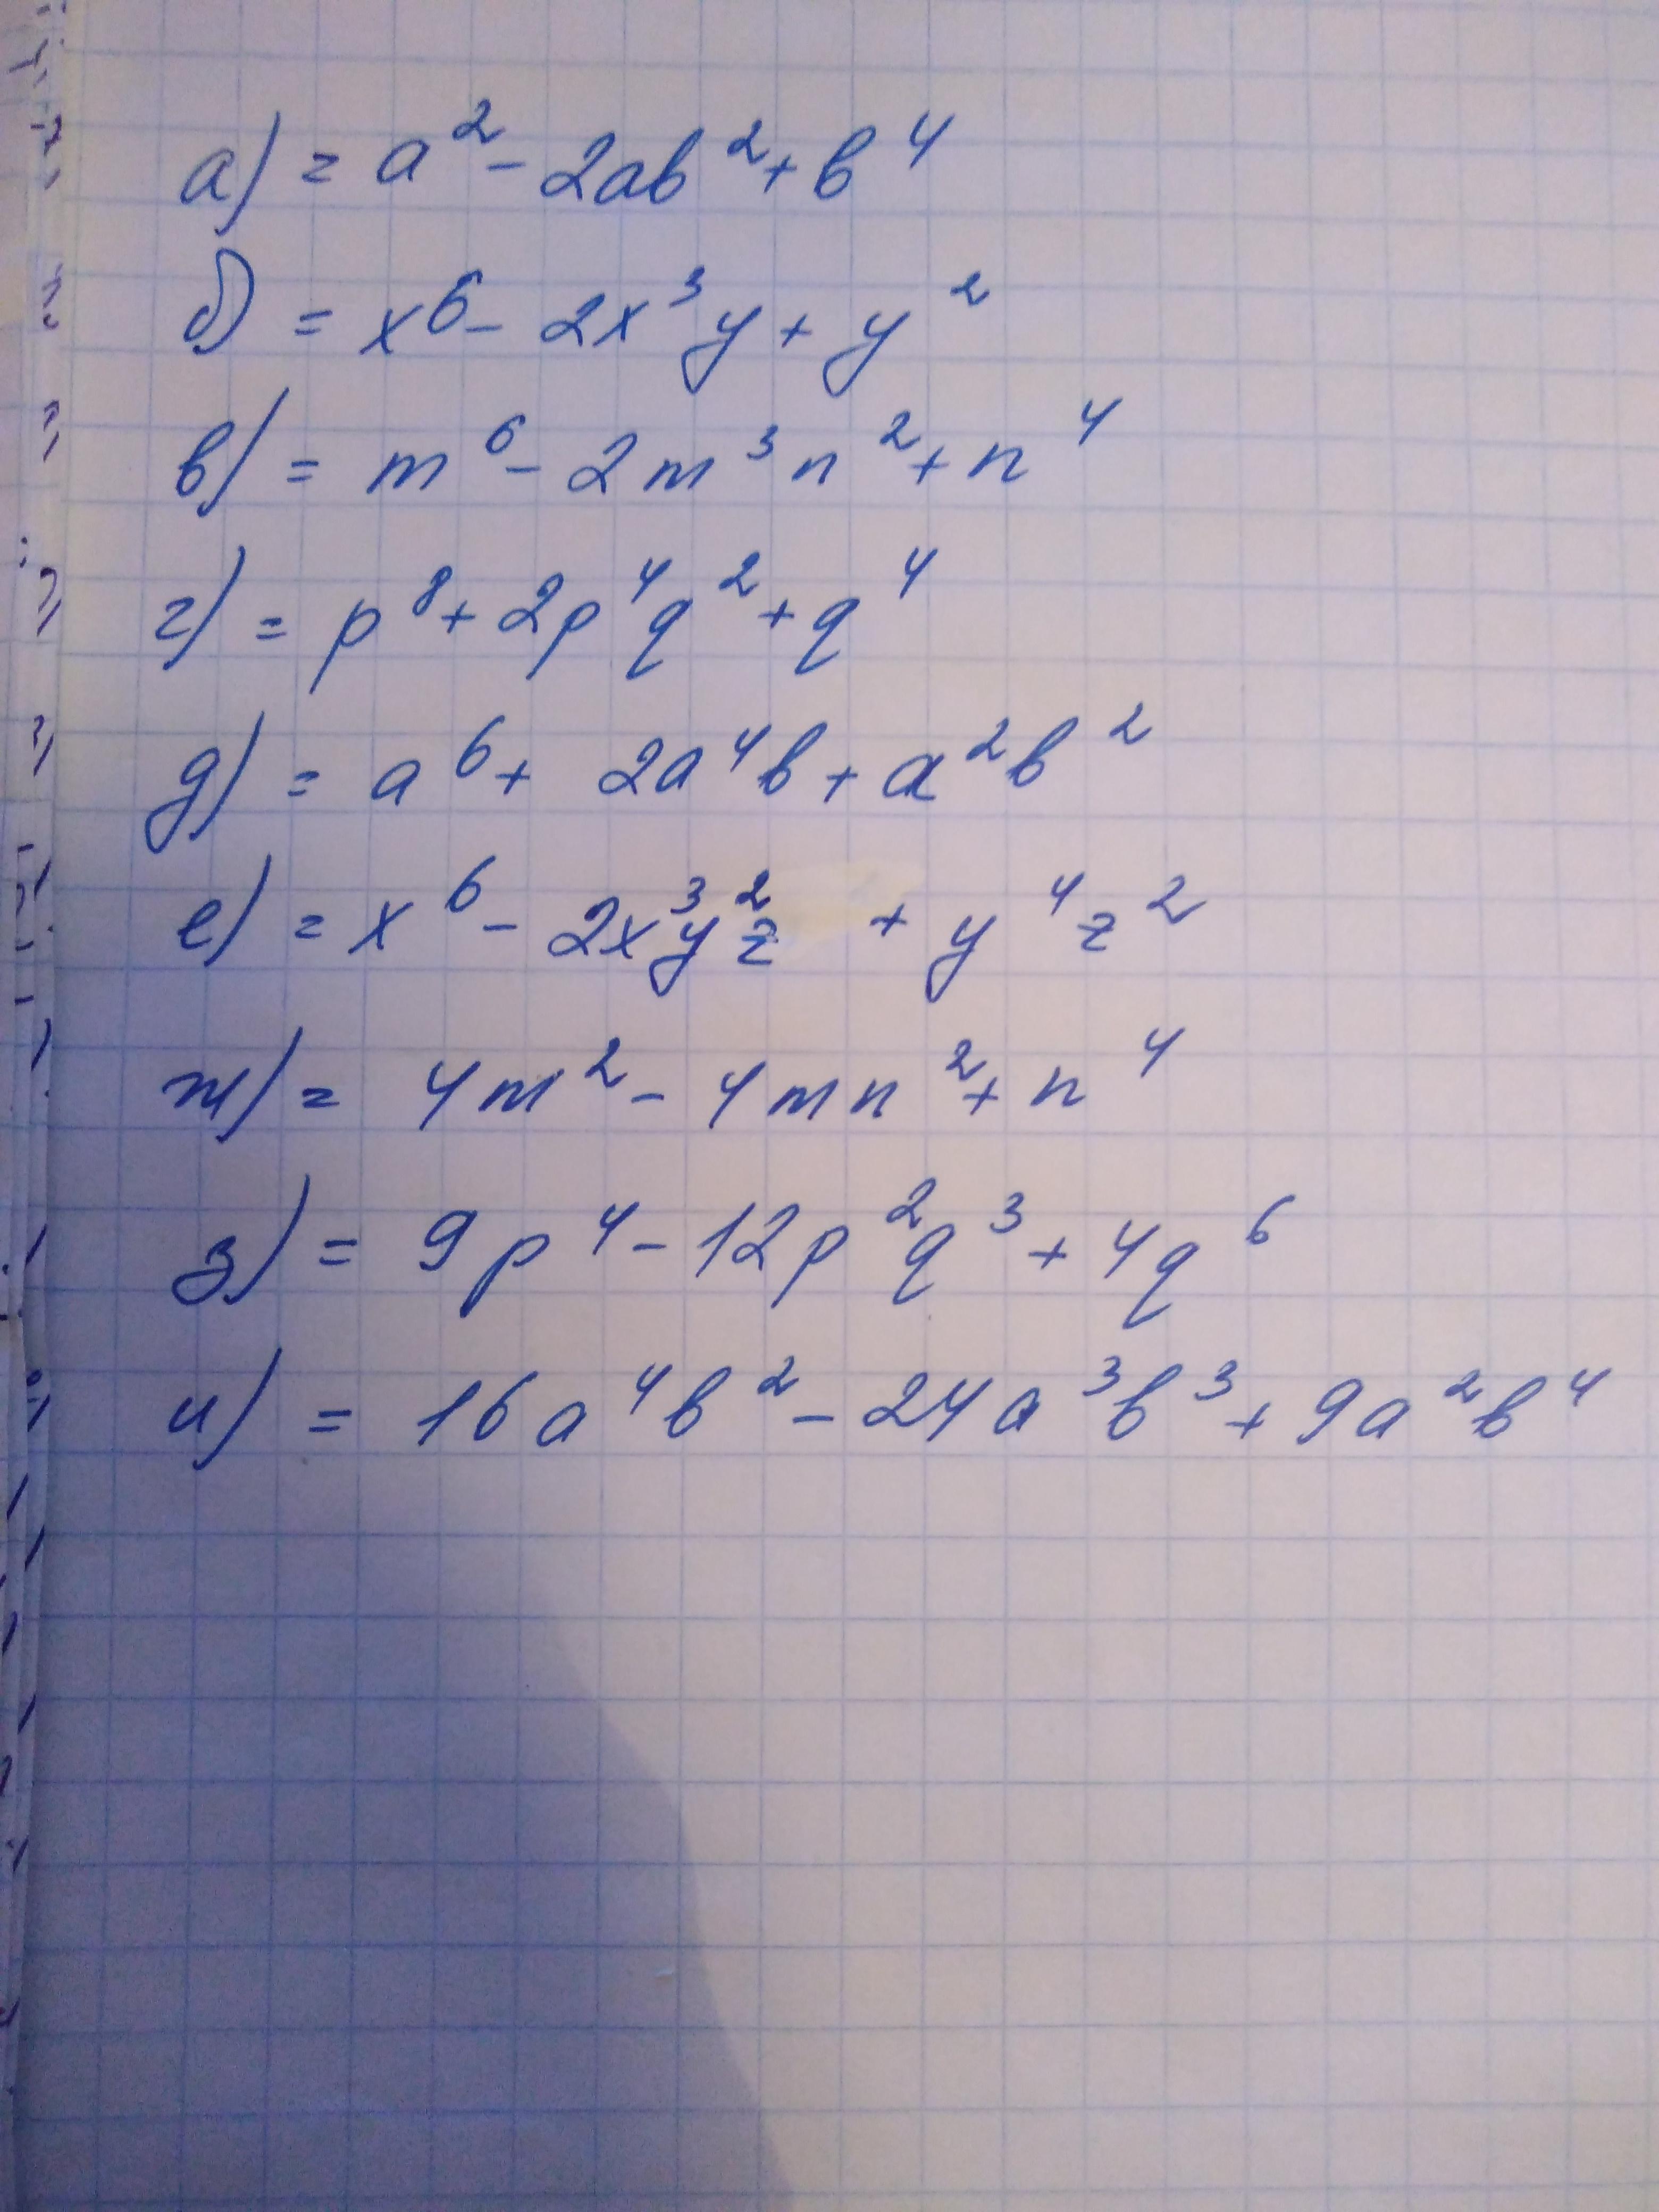 а) = a² - 2ab² + b⁴
б) = x⁶ - 2x³y + y²
в) = m⁶ - 2m³n² + n⁴
г) = p⁸ + 2p⁴q² + q⁴
д) = a⁶ + 2a⁴b + a²b²
е) = x⁶ - 2x³y²z + y⁴z²
ж) = 4m² - 4mn² + n⁴
з) = 9p⁴ - 12p²q³ + 4q⁶
и) = 16a⁴b² - 24a³b³ + 9a²b⁴